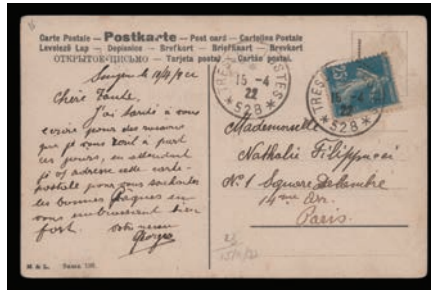 Carte Postale — Postkarte — Post card — Cartolina Postale
Levelező Lap — Dopisnice — Brefkort — Briefkaart — Brevkort
ОТКРЫТОЕ ПИСЬМО — Tarjeta postal — Cartão postal.
Chère Tante,
J'ai tardé à vous
écrire pour des raisons
que je vous
ces jours, en attendant
je adresse cette carte-
postale pour vous souhaiter
les bonnes Pâques en
vous embrassant bien
fort. Votre neveu
Georges
TRESOR ET POSTES
15 -4
22
* 528 *
25
Mademoiselle
Nathalie Filippucci
Nº 1 Square Delambre
14 Arr.
Paris.
M & L.